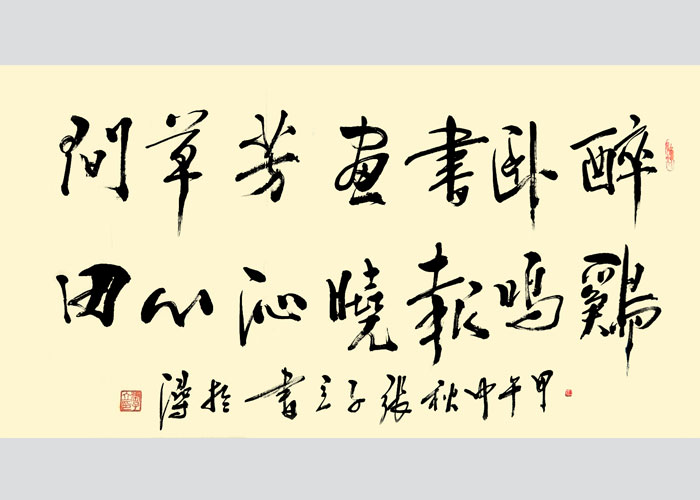 醉卧書畫芳草間
鷄鳴報曉沁心田
甲午仲秋張子立書於